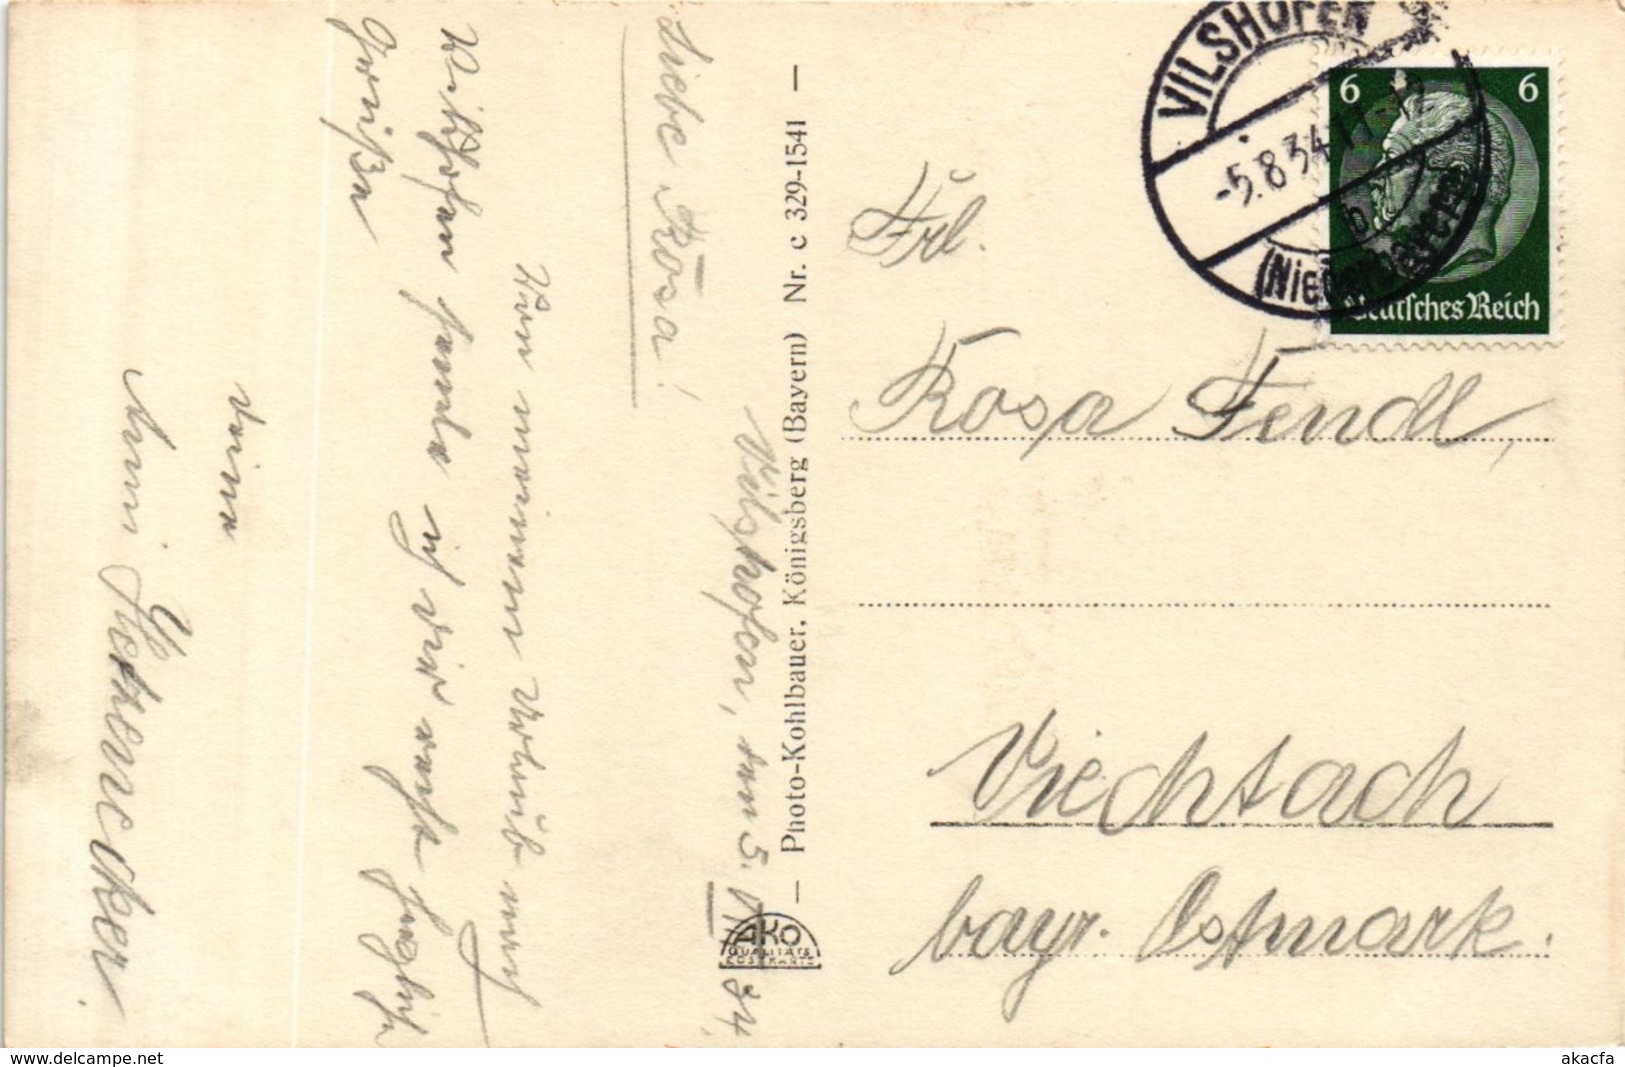 Vilshofen, am 5. VIII. 34.
Liebe Rosa!
Von meinem Urlaub nach
Vilshofen sende ich dir recht herzliche
Grüße
deine
Anni
Photo-Kohlbauer, Königsberg (Bayern) Nr. c 329-1541
AKO
QUALITÄTS
POSTKARTE
VILSHOFEN
-5.8.34.11-12
b
(Niederbayern)
6 6
Deutsches Reich
Frl.
Rosa Fendl,
Viechtach
bayr. Ostmark.
www.delcampe.net
akacfa